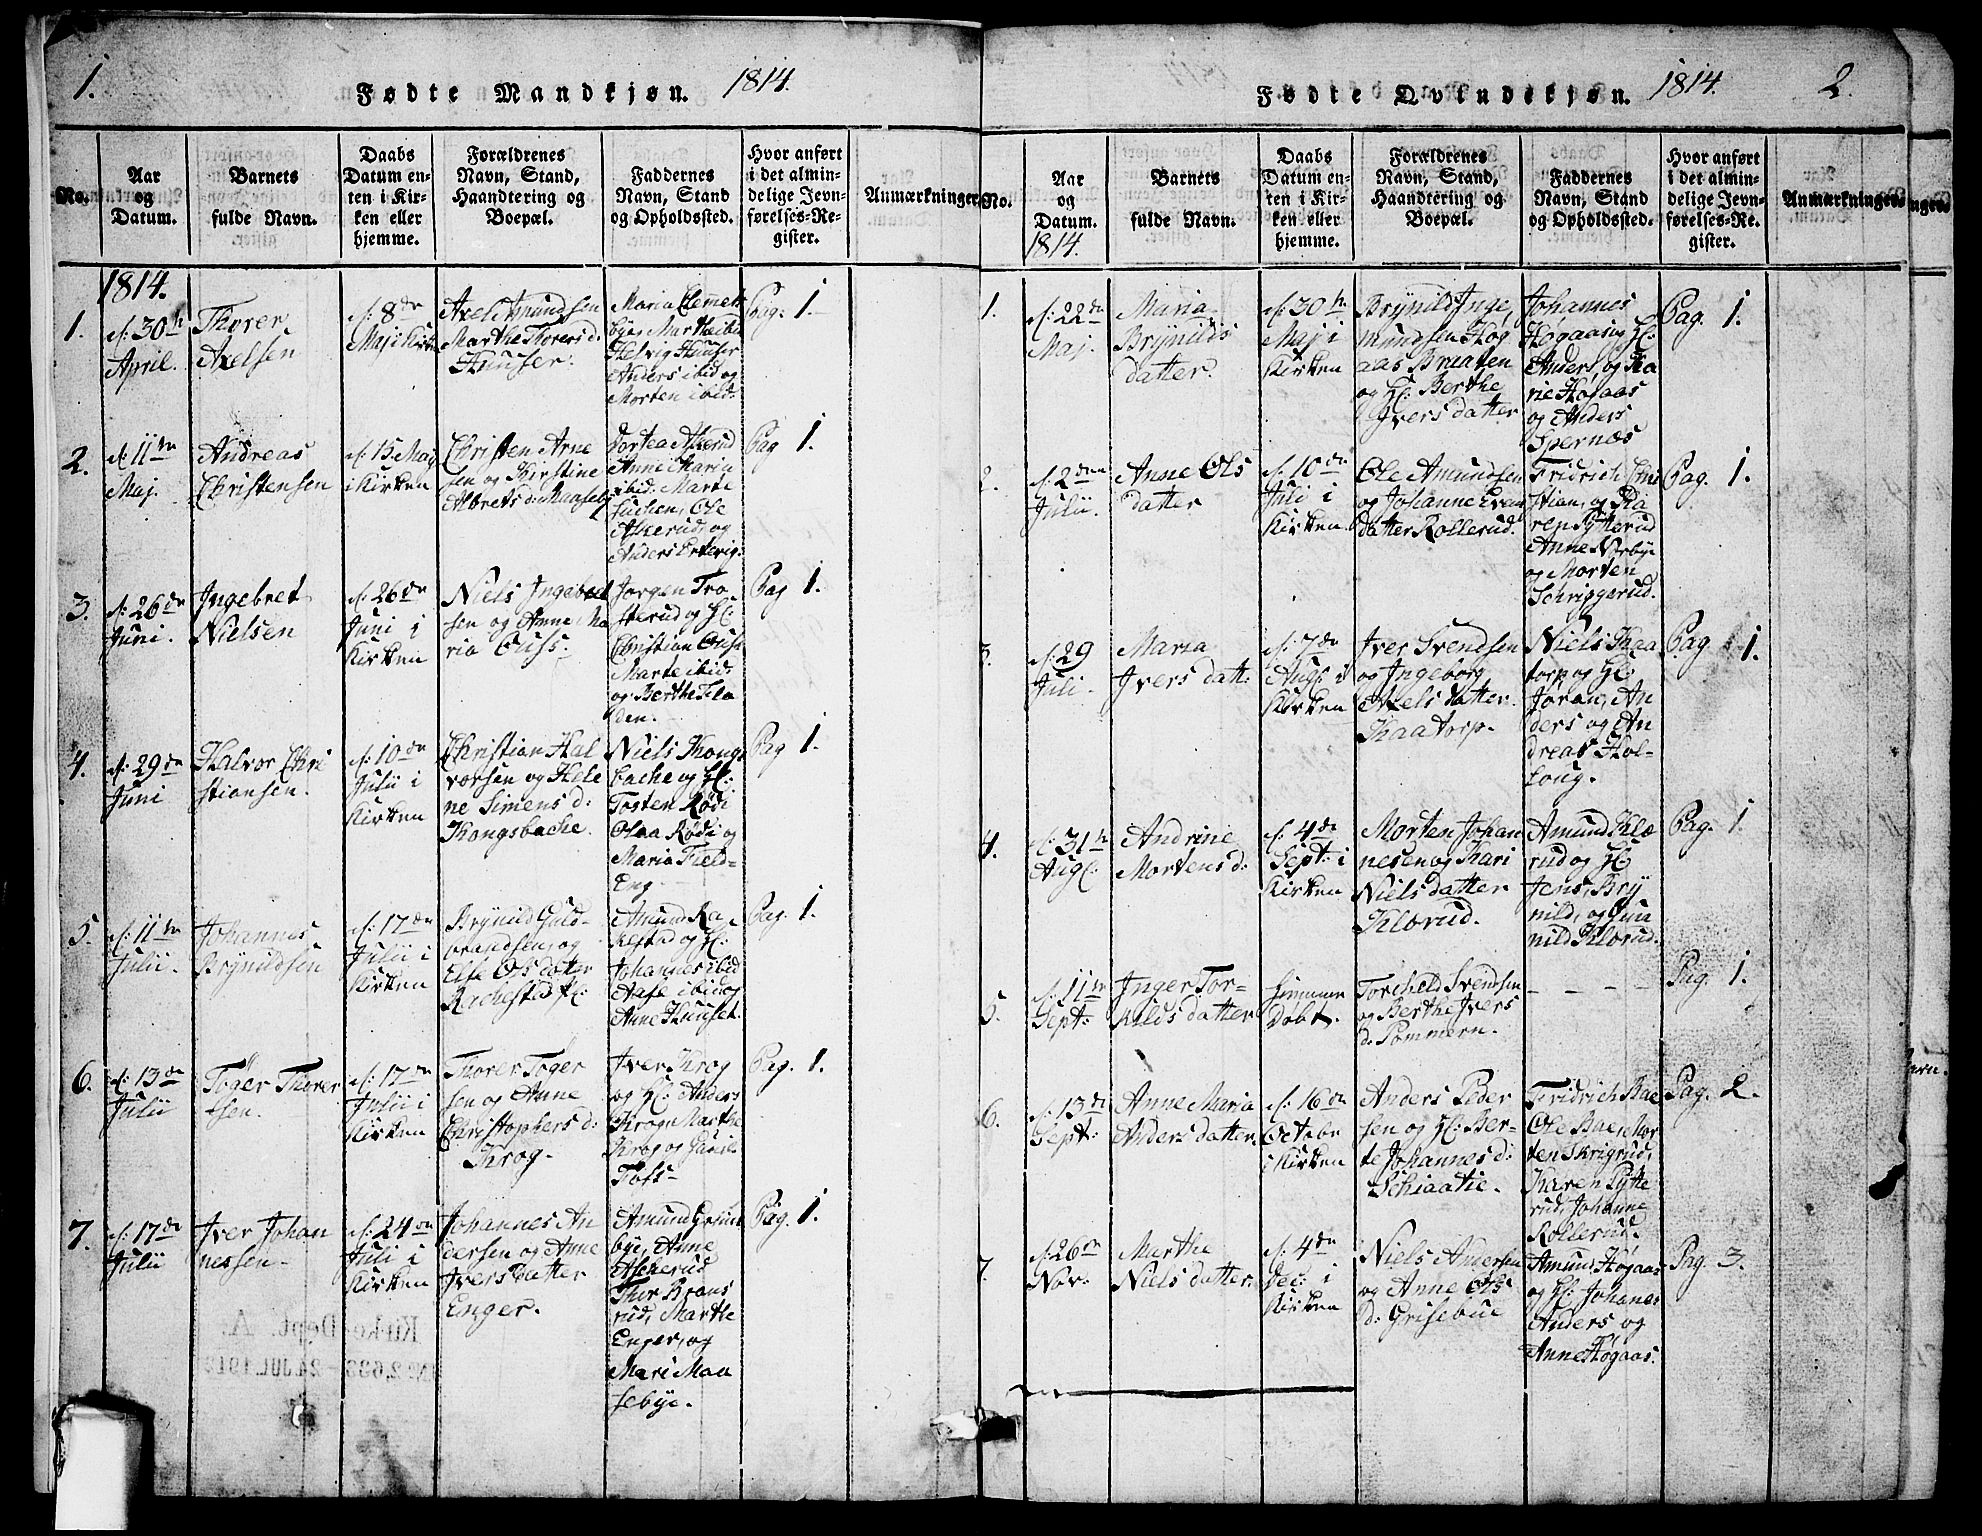 1.
Fødte Mandkjøn. 1814.
No.
Aar
og
Datum.
Barnets
fulde Navn.
Daabs
Datum en-
ten i Kir-
ken eller
hjemme.
Forældrenes
Navn, Stand,
Haandtering og
Boepæl.
Faddernes
Navn, Stand
og Opholdssted.
Hvor anført
i det almin-
delige Jevn-
førelses-Re-
gister.
Anmærkninger.
1814.
1.
d: 30te
April.
Thorer
Axelsen
d: 8de
Maj i Kirken
Axel Amundsen
Marthe Thorersd:
Huuser.
Maria Clemets
bye, Marthe ibid
Helvig Huuser
Anders ibid og
Morten ibid:
Pag: 1.
2.
d: 11te
Maj.
Andreas
Christensen
d: 15. Maj
i Kirken
Christen Arne
sen og Kirstine
Albretsd: Maaseby
Dortea Askerud
Anne Maria
ibid: Marte
Ole
Askerud, og
Anders
Pag 1.
3.
d: 26de
Juni.
Ingebret
Nielsen
d: 26de
Juni i
Kirken
Niels Ingebret
sen og Anne Ma
ria Ouss.
Jorgen Tro
sterud og H:
Christian Ouss
Marte ibid
og Berthe Fla
den.
Pag 1.
4.
d: 29de
Juni
Halvor Chri
stiansen.
d: 10de
Julii i
Kirken
Christian Hal
vorsen og Hele
ne Simensd:
Kongsbache.
Niels Kongs
bache og H:
Tosten Rødi
Olaa Rødi og
Maria Field-
Eng
Pag 1.
5.
d: 11te
Julii.
Johannes
Brynildsen
d: 17de
Julii i
Kirken
Brynild Guld-
brandsen og
Else Olsdatter
Rachestad
Amund Ra
kestad og H:
Johannes ibid
Aase ibid og
Anne Huuset.
Pag. 1.
6.
d: 13de
Julii
Töger Thorer
sen.
d: 17de
Julii i
Kirken
Thorer Töger
sen og Anne
Christophersd:
Krog.
Iver Krog
og H: Anders
Krog, Marthe
Krog og
Toss-
Pag. 1.
7.
d: 17de
Julii
Iver Johan
nessen.
d: 24de
Juli i
Kirken
Johannes An
dersen og Anne
Iversdatter
Enger.
Amund Grim
bye, Anne
Askerud
Thor Brons
rud, Marthe
Enger, og
Mari Maa
sebye.
Pag. 1.
Fødte Qvindekjøn. 1814.
2.
No.
Aar
og
Datum.
1814.
Barnets
fulde Navn.
Daabs
Datum en-
ten i Kir-
ken eller
hjemme.
Forældrenes
Navn, Stand,
Haandtering og
Boepæl.
Faddernes
Navn, Stand
og Opholdssted.
Hvor anført
i det almin-
delige Jevn-
førelses-Re-
gister.
Anmærkninger.
1.
d: 22de
Maj.
Maria
Brynilds
datter.
d: 30te
Maj i
Kirken
Brynild Inge
mundsen Høg
aas Braaten
og H: Berthe
Iversdatter
Johannes
Høgaas og H:
Anders, og Ka
rie Høgaas
og Anders
Spernæs
Pag. 1.
2.
d: 2den
Julii.
Anne Ols
datter
d: 10de
Juli i
Kirken.
Ole Amundsen
og Johanne Even
datter Rollerud.
Fridrich Chri
stian, og Ka
ren Pytterud
Anne Norbye
og Morten
Schriggerud.
Pag. 1.
3.
d: 29
Juli.
Maria
Ivers datt:
d: 7de
Aug: i
Kirken
Iver Svendsen
og Ingeborg
Axels datter.
Kaatorp.
Niels Kaa
torp og H:
Joran, An
ders og An
dreas Hol-
Pag. 1.
4.
d: 31te
Aug:
Andrine
Mortensd:
d: 4de
Sept: i
Kirken
Morten Johan
nesen og Kari
Nielsdatter
Klørud.
Amund Klø
rud og H:
Jens, Bry
nild, og Gun
nild Klørud.
Pag. 1.
5.
d: 11te
Sept:
Inger Tor-
kilds datter
himme
Døbt.
Torcheld Svendsen
og Berthe Ivers
d: Pommern.
- - - -
Pag. 1.
6.
d: 13de
Sept:
Anne Maria
Anders datter.
d: 16de
Octobr
i Kirken
Anders Peder
sen og H: Ber-
te Johannesd:
Schiaatie.
Fridrich Bae
Ole Bae, Mor
ten Skrigrud,
Karen Pytte
rud, Johanne
Rollerud.
Pag. 2.
7.
d: 26de
Nov:
Marthe
Niels datter.
d: 4de
Dec: i
Kirken
Niels Andersen
og Anne Ols
d: Grisebue
Amund Høgaas
og H: Johanes
Anders og
Anne Høgaas.
Pag. 3.